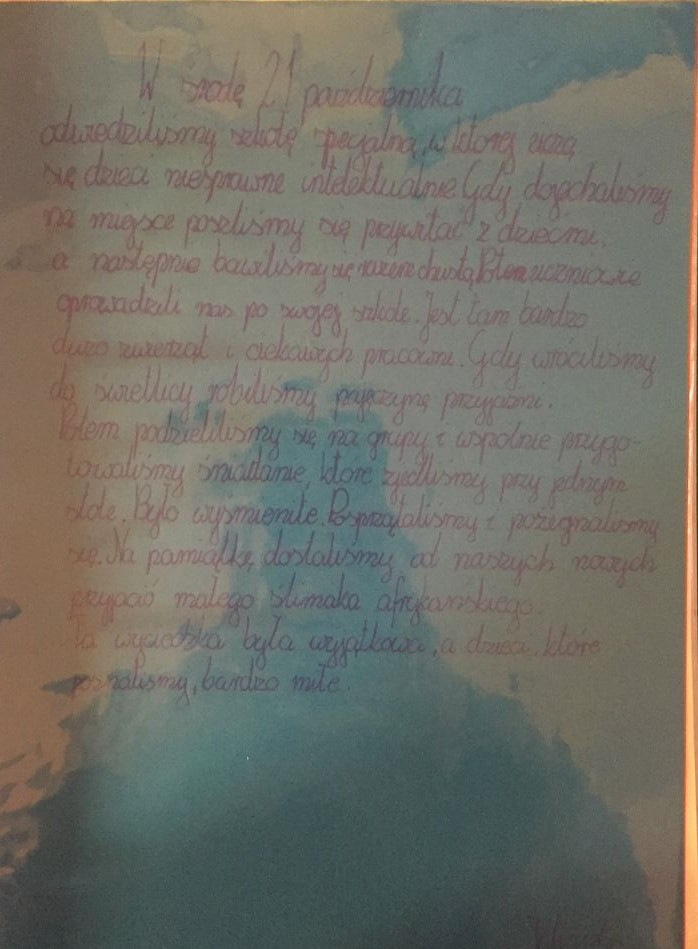 W środę 21 października
odwiedziliśmy szkołę specjalną, w której uczą
się dzieci niesprawne intelektualnie. Gdy dojechaliśmy
na miejsce poszliśmy się przywitać z dziećmi,
a następnie bawiliśmy się razem chustą. Potem uczniowie
oprowadzili nas po swojej szkole. Jest tam bardzo
dużo zwierząt i ciekawych pracowni. Gdy wróciliśmy
do świetlicy robiliśmy pajęczynę przyjaźni.
Potem podzieliliśmy się na grupy i wspólnie przygo-
towaliśmy śniadanie, które zjedliśmy przy jednym
stole. Było wyśmienite. Posprzątaliśmy i pożegnaliśmy
się. Na pamiątkę dostaliśmy od naszych nowych
przyjació małego ślimaka afrykańskiego.
Ta wycieczka była wyjątkowa, a dzieci, które
poznaliśmy, bardzo miłe.